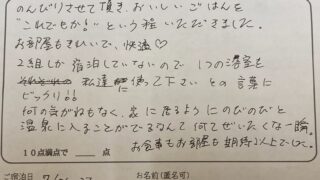 のんびりさせて頂き、おいしいごはんを
"これでもか!"という程いただきました。
お部屋もきれいで、快適♡
2組しか宿泊していないので 1つの浴室を
私達に使って下さい との言葉に
ビックリ!!
何の気がねもなく、家に居るようにのびのびと
温泉に入ることができるなんて何てぜいたくな一瞬。
お食事もお部屋も期待以上でした。
10点満点で 点
ご宿泊日 7/ お名前(匿名可)